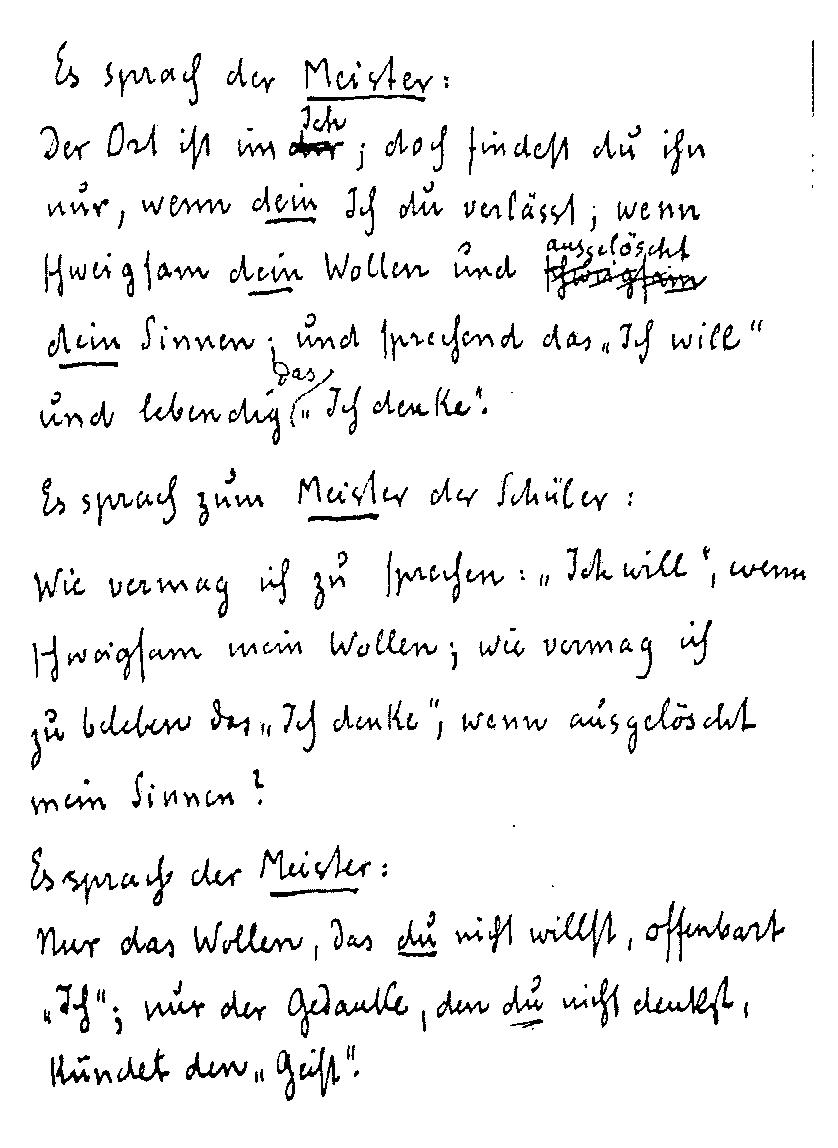 Es sprach der Meister:
Ich
Der Ort ist im der; doch findest du ihn
nur, wenn dein Ich du verlässt; wenn
ausgelöscht
schweigsam dein Wollen und schweigsam
dein Sinnen; und sprechend das „Ich will“
das
und lebendig „Ich denke“.
Es sprach zum Meister der Schüler:
Wie vermag ich zu sprechen: „Ich will“, wenn
schweigsam mein Wollen; wie vermag ich
zu beleben das „Ich denke“, wenn ausgelöscht
mein Sinnen?
Es sprach der Meister:
Nur das Wollen, das du nicht willst, offenbart
„Ich“; nur der Gedanke, den du nicht denkst,
Kündet den „Geist“.